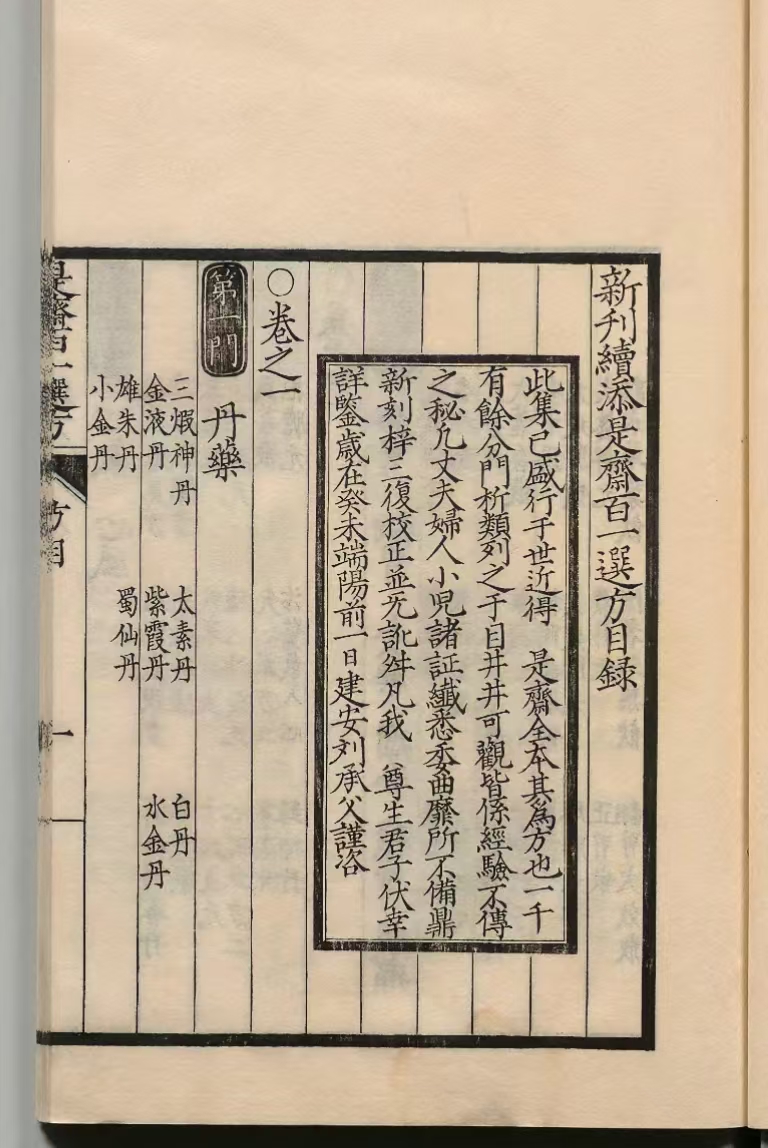 新刋續添是齋百一選方目録
此集已盛行于世近得　是齋全本其爲方也一千
有餘分門析類列之于目井井可觀皆係經驗不傳
之秘凢丈夫婦人小児諸証纎悉委曲靡所不備鼎
新刻梓三復校正並无訛舛凡我　尊生君子伏幸
詳鑒歳在癸未端陽前一日建安刘承父謹咨
○卷之一
第一門　丹藥
三煆神丹　太素丹　白丹
金液丹　紫霞丹　水金丹
雄朱丹　蜀仙丹
小金丹
是齋百一選方　方目　一